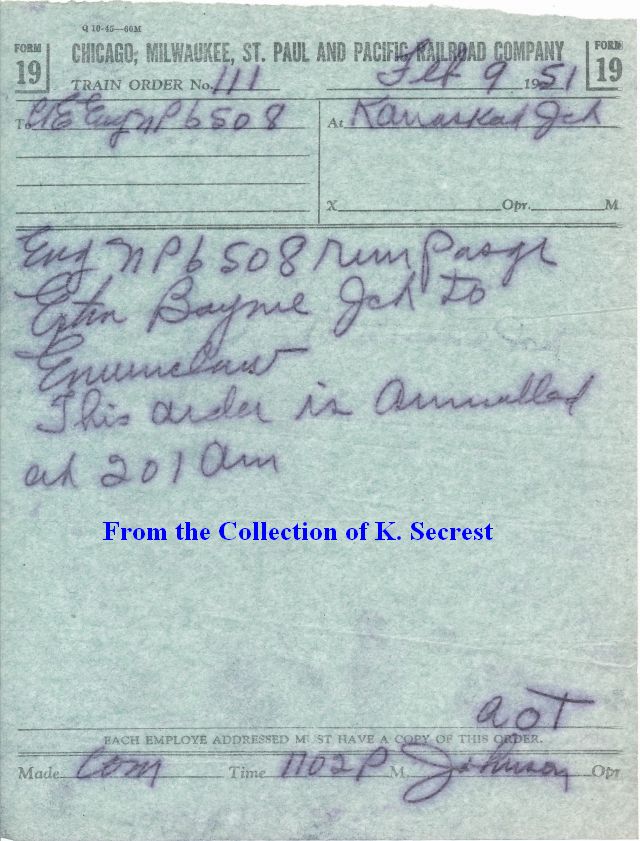 Q 10-45—60M
FORM 19
CHICAGO, MILWAUKEE, ST. PAUL AND PACIFIC RAILROAD COMPANY
FORM 19
TRAIN ORDER No. 111 Feb 9 1951
To CE Eng NP 6508
At Kanaskat Jch
X Opr. M
Eng NP 6508 run Pasgr
Extra Bayne Jch to
Enumclaw
This order is annulled
at 201 am
From the Collection of K. Secrest
AOT
EACH EMPLOYE ADDRESSED MUST HAVE A COPY OF THIS ORDER.
Made Com Time 1102P M. Johnson Opr